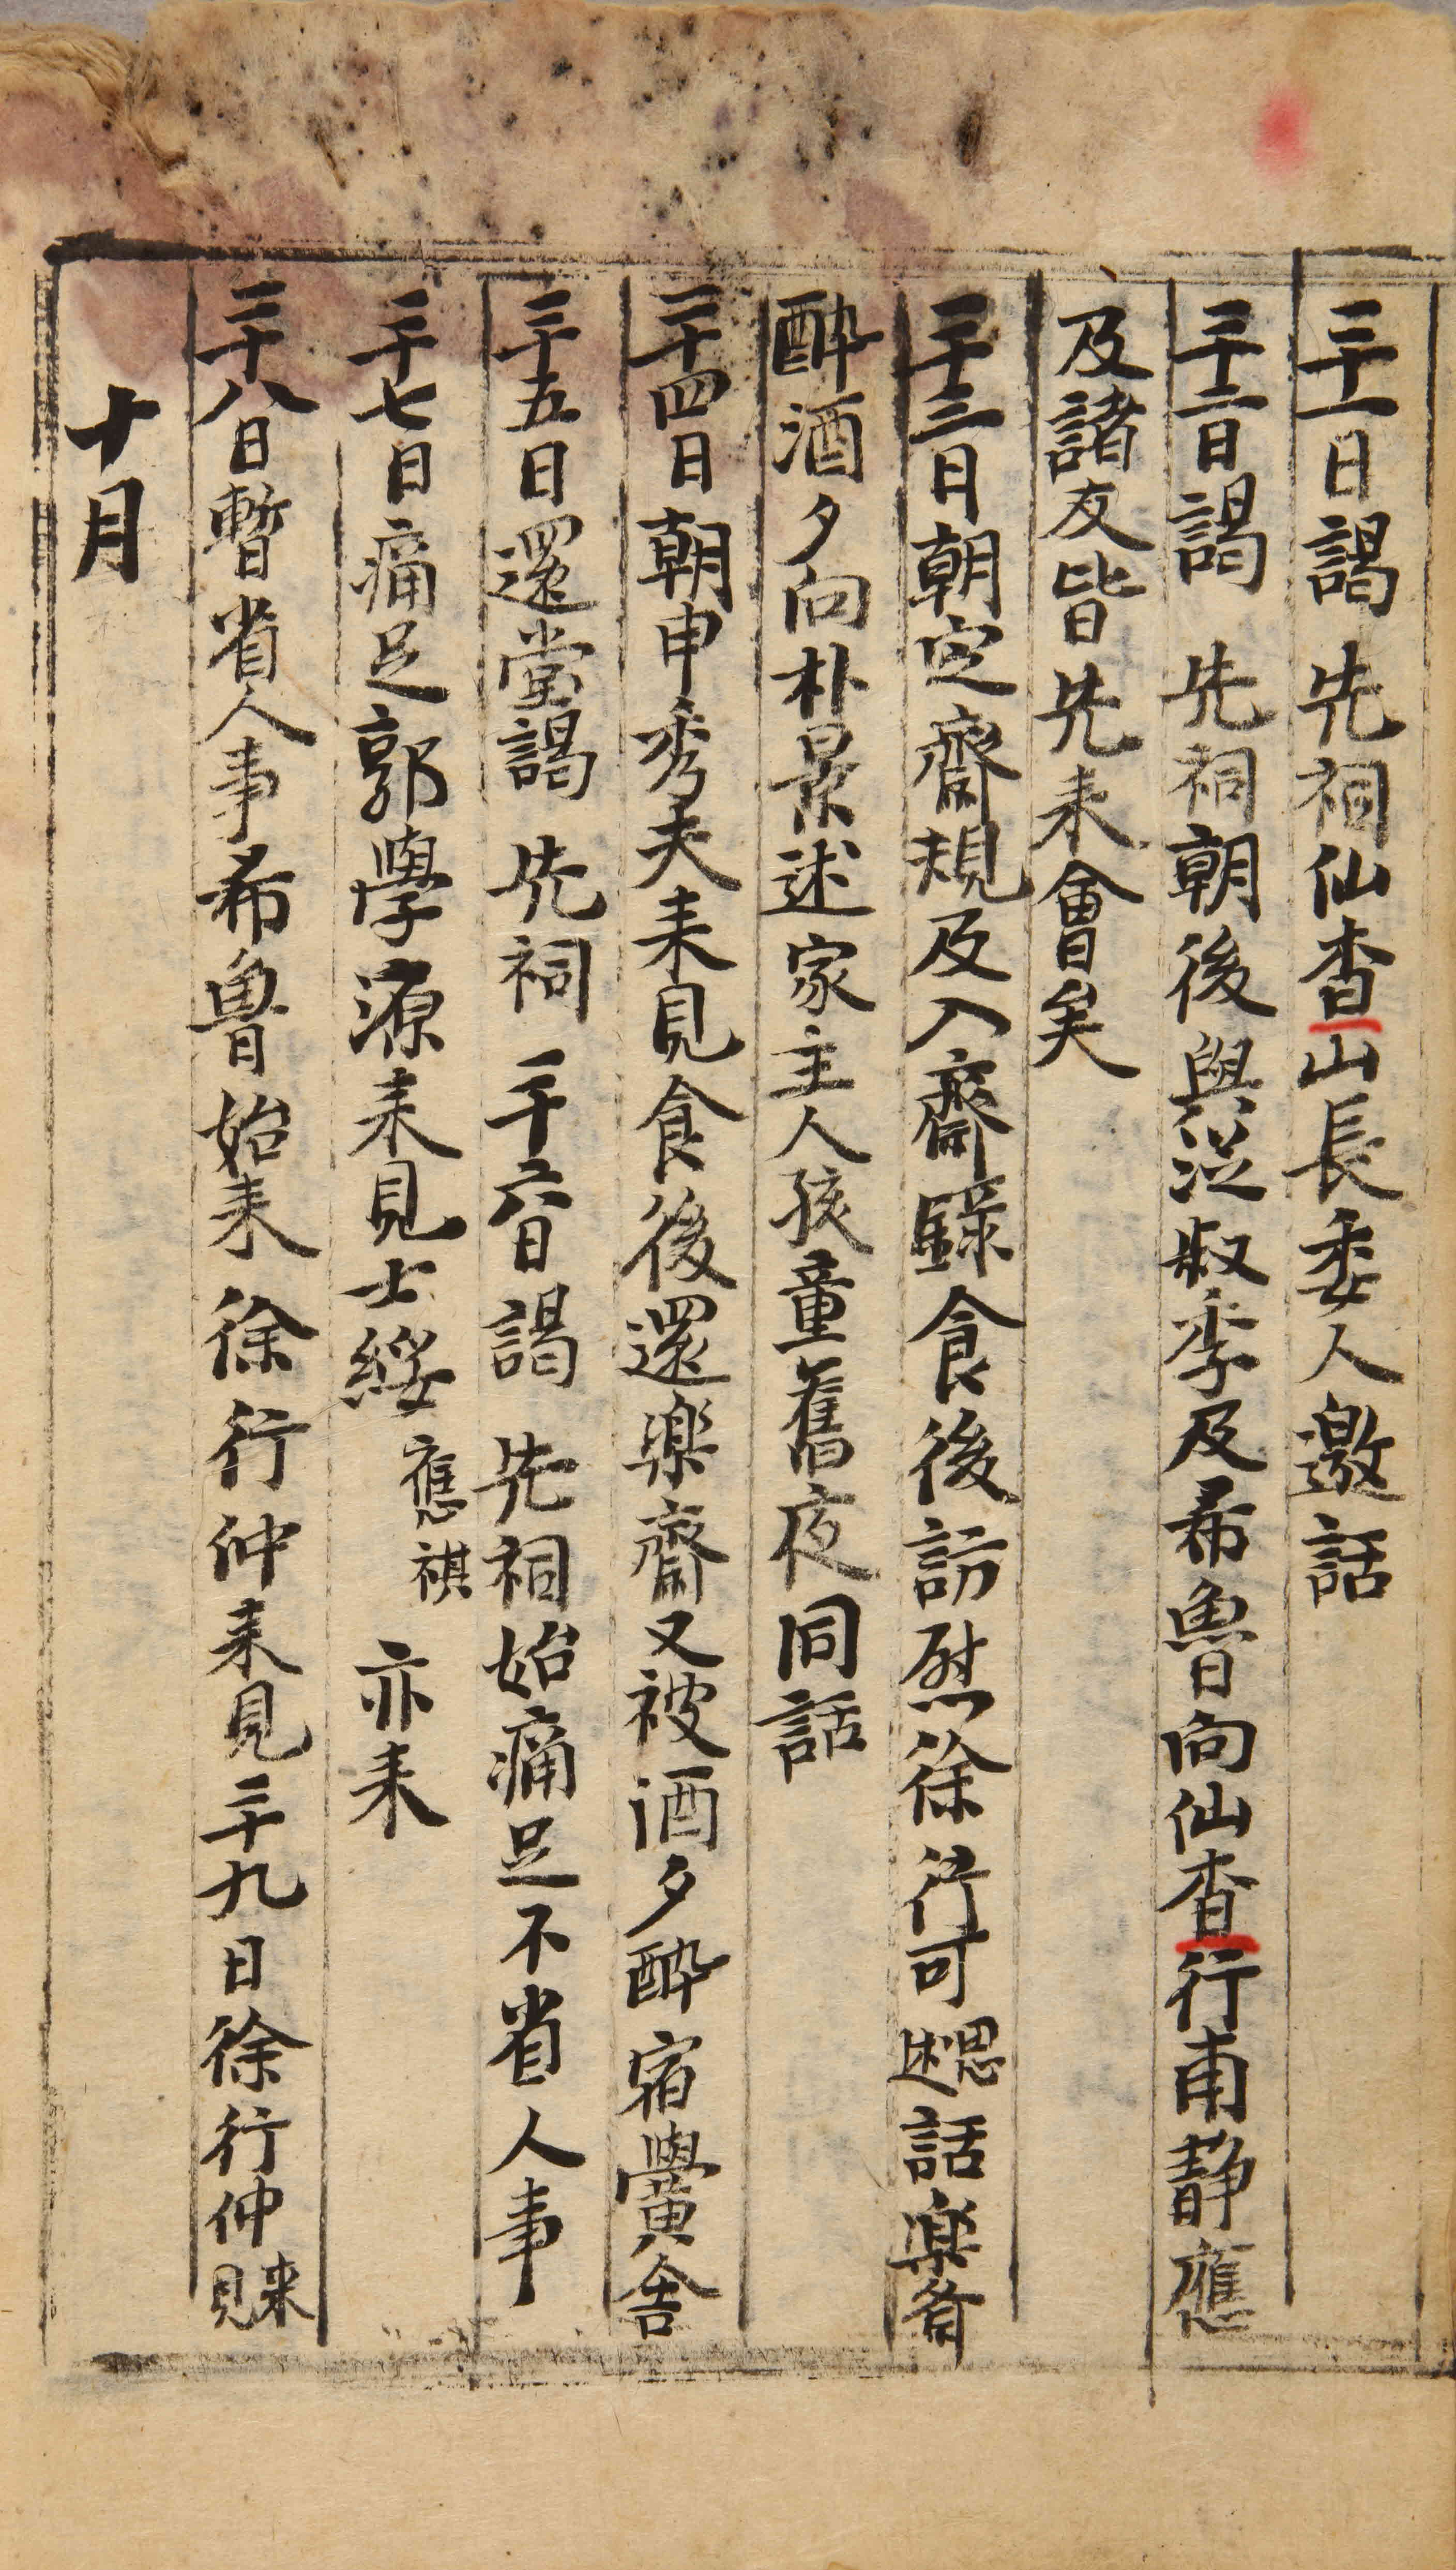 二十一日謁 先祠仙査山長委人邀話
二十二日謁 先祠朝後與從叔季及希魯向仙査行甫靜應
及諸友皆先来會矣
二十三日朝定齋規及入齋錄食後訪慰徐行可思述話樂齋
醉酒夕向朴景述家主人孩童舊夜同話
二十四日朝申秀夫来見食後還樂齋又被酒夕醉宿黌舍
二十五日還堂謁 先祠 二十六日謁 先祠始痛足不省人事
二十七日痛足郭學源来見士綏應祺亦来
二十八日暫省人事希魯始来 徐行仲来見二十九日徐行仲来見
十月